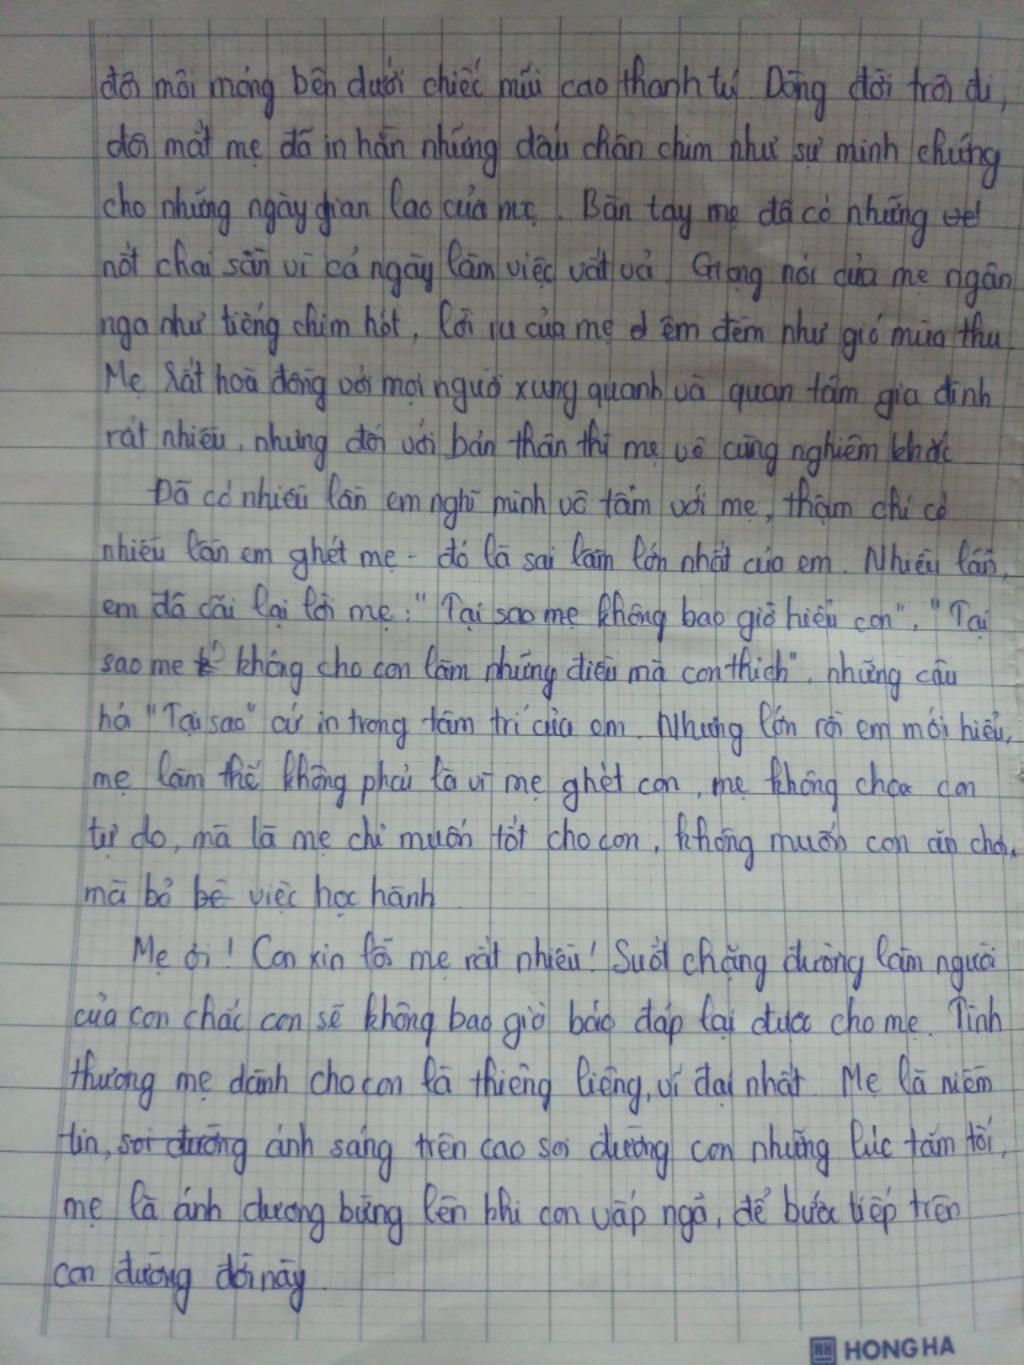 đôi môi mỏng bên dưới chiếc mũi cao thanh tú. Dòng đời trôi đi,
đôi mắt mẹ đã in hằn những dấu chân chim như sự minh chứng
cho những ngày gian lao của mẹ. Bàn tay mẹ đã có những
nốt chai sần vì cả ngày làm việc vất vả. Giọng nói của mẹ ngân
nga như tiếng chim hót, lời ru của mẹ êm đềm như gió mùa thu.
Mẹ rất hoà đồng với mọi người xung quanh và quan tâm gia đình
rất nhiều, nhưng đối với bản thân thì mẹ vô cùng nghiêm khắc
Đã có nhiều lần em nghĩ mình vô tâm với mẹ, thậm chí có
nhiều lần em ghét mẹ - đó là sai lầm lớn nhất của em. Nhiều lần,
em đã cãi lại lời mẹ: "Tại sao mẹ không bao giờ hiểu con", "Tại
sao mẹ không cho con làm những điều mà con thích", những câu
hỏi "Tại sao" cứ in trong tâm trí của em. Nhưng lớn rồi em mới hiểu,
mẹ làm thế không phải là vì mẹ ghét con, mẹ không cho con
tự do, mà là mẹ chỉ muốn tốt cho con, không muốn con ăn chơi,
mà bỏ bê việc học hành
Mẹ ơi! Con xin lỗi mẹ rất nhiều! Suốt chặng đường làm người
của con chắc con sẽ không bao giờ báo đáp lại được cho mẹ. Tình
thương mẹ dành cho con là thiêng liêng, vĩ đại nhất. Mẹ là niềm
tin, soi đường ánh sáng trên cao soi đường con những lúc tăm tối,
mẹ là ánh dương bừng lên khi con vấp ngã, để bước tiếp trên
con đường đời này.
HONG HA